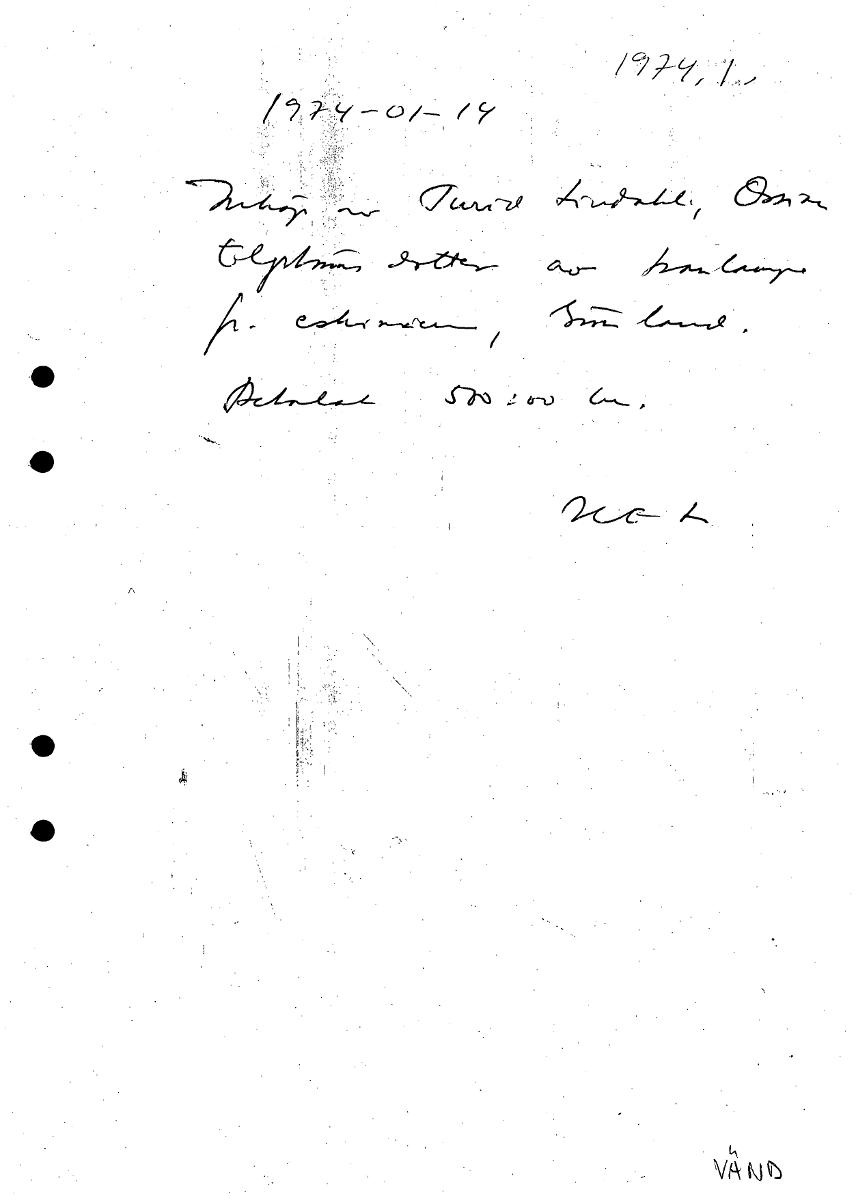 1974.1.
1974-01-14
Inköp av Turid Lindahl, Ossian
Elgströms dotter av tranlampa
fr. eskimåerna, Grönland.
Betalat 500:00 kr.
VÄND